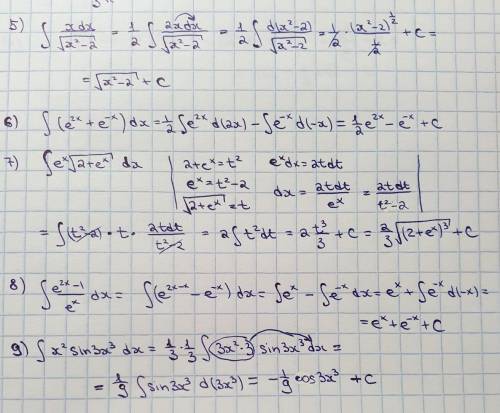 5) ∫ xdx/√(x²-2) = 1/2 ∫ 2xdx/√(x²-2) = 1/2 ∫ d(x²-2)/√(x²-2) = 1/2 · (x²-2)^(1/2)/(1/2) + C =
= √(x²-2) + C
6) ∫ (e^(2x) + e^(-x)) dx = 1/2 ∫ e^(2x) d(2x) - ∫ e^(-x) d(-x) = 1/2 e^(2x) - e^(-x) + C
7) ∫ e^x √(2+e^x) dx | 2+e^x = t² e^x dx = 2tdt
e^x = t²-2 dx = 2tdt/e^x = 2tdt/(t²-2)
√(2+e^x) = t |
= ∫ (t²-2) · t · 2tdt/(t²-2) = 2 ∫ t² dt = 2 t³/3 + C = 2/3 √((2+e^x)³) + C
8) ∫ (e^(2x)-1)/e^x dx = ∫ (e^(2x-x) - e^(-x)) dx = ∫ e^x - ∫ e^(-x) dx = e^x + ∫ e^(-x) d(-x) =
= e^x + e^(-x) + C
9) ∫ x² sin3x³ dx = 1/3 · 1/3 ∫ 3x²·3 sin3x³ dx =
= 1/9 ∫ sin3x³ d(3x³) = -1/9 cos3x³ + C